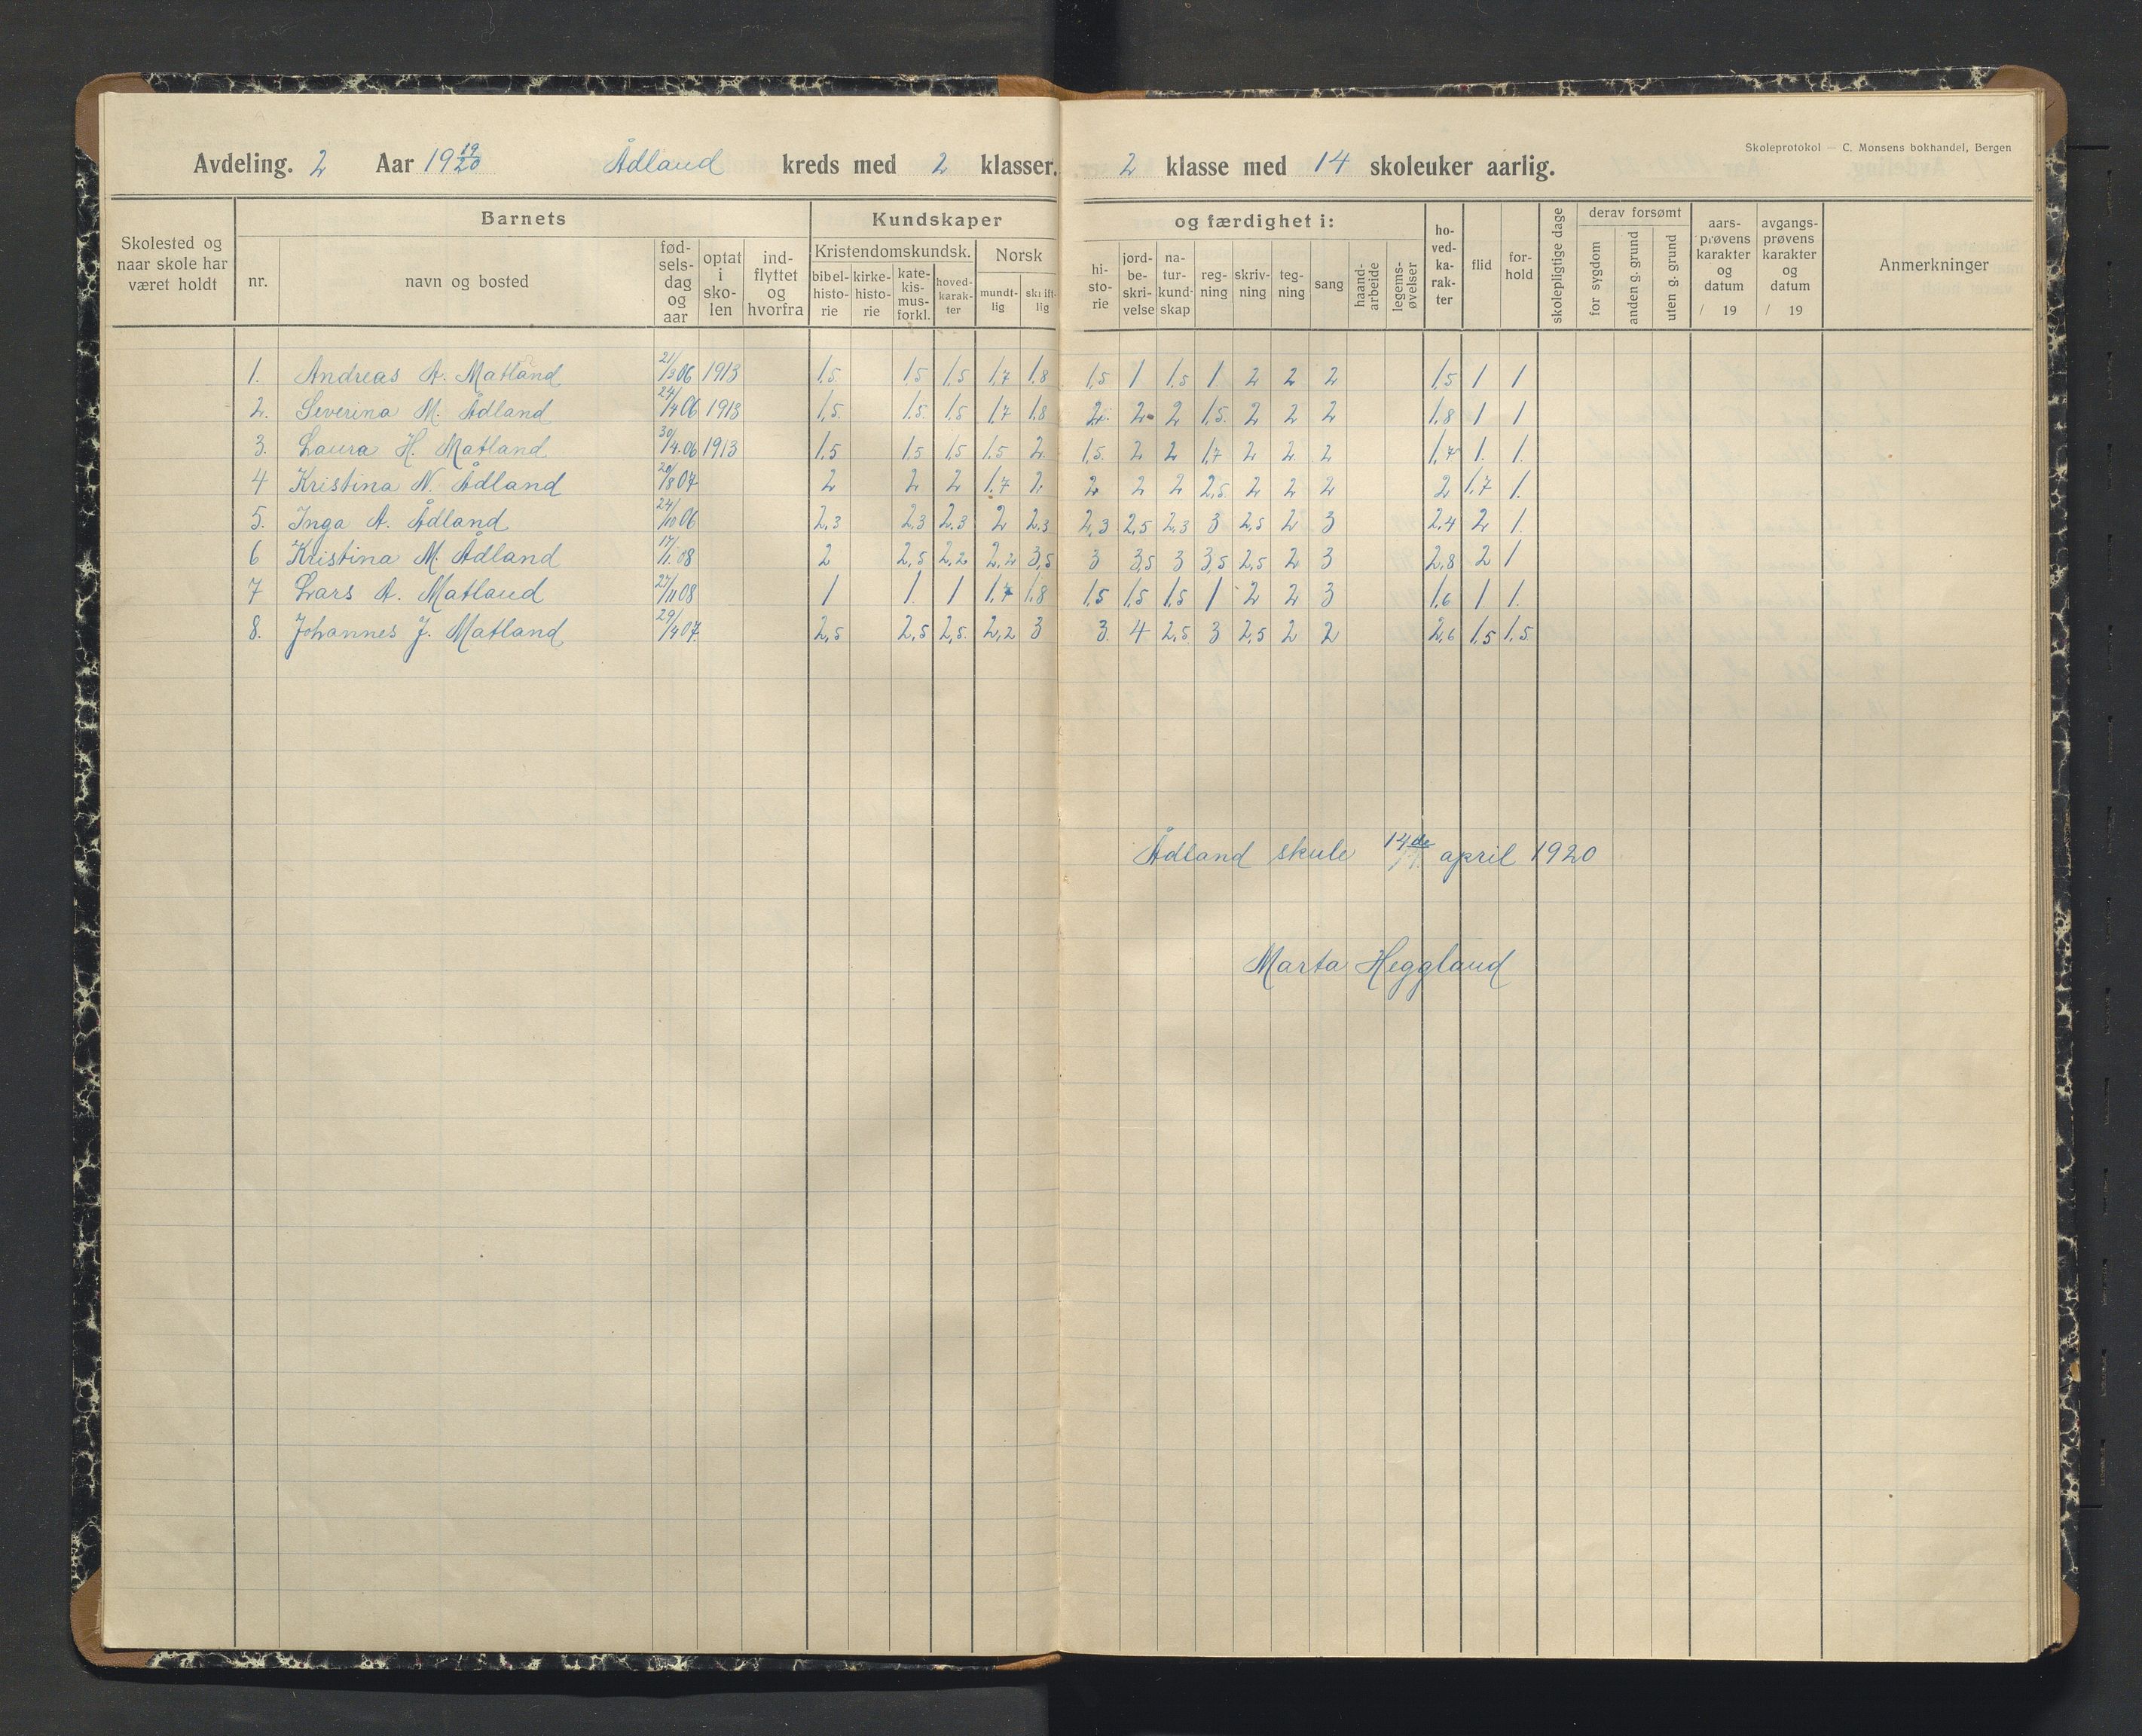 Skoleprotokol — C. Monsens bokhandel, Bergen
Avdeling. 2 Aar 19 19/20 Ådland kreds med 2 klasser. 2 klasse med 14 skoleuker aarlig.
Skolested og naar skole har været holdt
Barnets
nr.
navn og bosted
fød-sels-dag og aar
optat i sko-len
ind-flyttet og hvorfra
Kundskaper og færdighet i:
Kristendomskundsk.
bibel-histo-rie
kirke-histo-rie
kate-kis-mus-forkl.
hoved-karak-ter
Norsk
mundt-lig
skrift-lig
hi-sto-rie
jord-be-skri-velse
na-tur-kund-skap
reg-ning
skriv-ning
teg-ning
sang
haand-arbeide
legems-øvelser
ho-ved-ka-rak-ter
flid
for-hold
skolepligtige dage
derav forsømt
for sygdom
anden g. grund
uten g. grund
aars-prøvens karakter og datum / 19
avgangs-prøvens karakter og datum / 19
Anmerkninger
1. Andreas A. Matland 21/3 06 1913 1,5 1,5 1,5 1,7 1,8 1,5 1 1,5 1 2 2 2 1,5 1 1
2. Severina M. Ådland 24/4 06 1913 1,5 1,5 1,5 1,7 1,8 2 2 2 1,5 2 2 2 1,8 1 1
3. Laura H. Matland 30/4 06 1913 1,5 1,5 1,5 1,5 2 1,5 2 2 1,7 2 2 2 1,7 1 1
4 Kristina N. Ådland 20/8 07 2 2 2 1,7 2 2 2 2 2,5 2 2 2 2 1,7 1
5. Inga A. Ådland 24/10 06 2,3 2,3 2,3 2 2,3 2,3 2,5 2,3 3 2,5 2 3 2,4 2 1
6 Kristina M. Ådland 17/1 08 2 2,5 2,2 2,2 3,5 3 3,5 3 3,5 2,5 2 3 2,8 2 1
7 Lars A. Matland 27/11 08 1 1 1 1,7 1,8 1,5 1,5 1,5 1 2 2 3 1,6 1 1
8. Johannes J. Matland 29/4 07 2,5 2,5 2,5 2,2 3 3 4 2,5 3 2,5 2 2 2,6 1,5 1,5
Ådland skule 14de april 1920
Marta Heggland